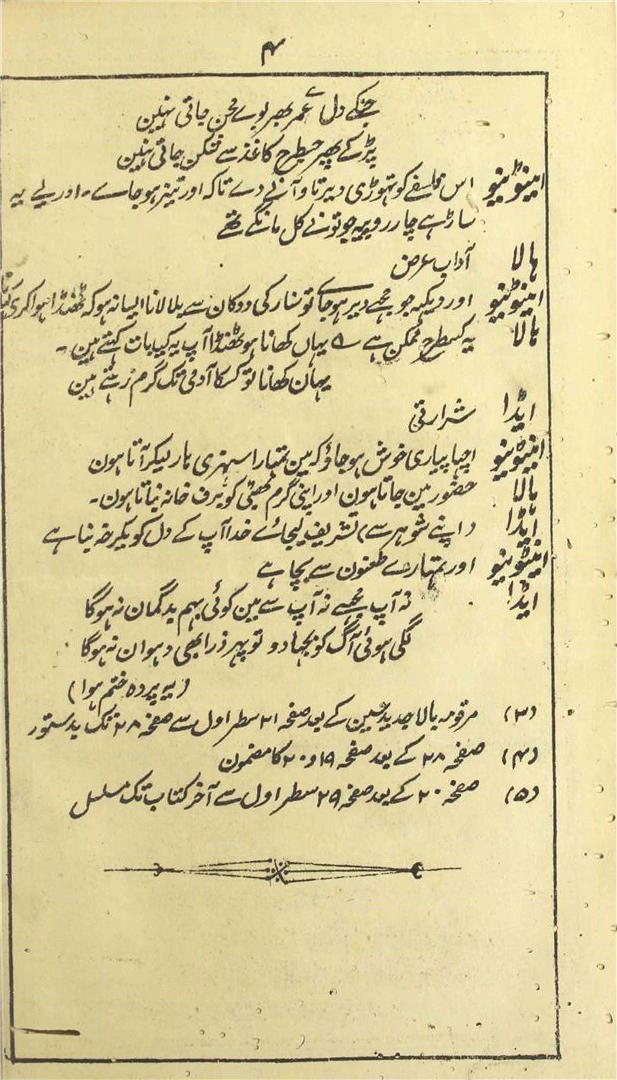 ۴
جنکے دل سے عمر بھر بوے محن جاتی نہین
پڑکے پھر جسطرح کاغذ سے شکن جاتی نہین
اینٹونیو اس فلسفے کو تہوڑی دیر تاو آنے دے تاکہ اور تیز ہو جاے۔ اور لے یہ
ساڑہے چار روپیہ جو تونے کل مانگے تھے
ہالا آداب عرض
اینٹونیو اور دیکہہ جو مجھے دیر ہو جاے تو سنار کی دوکان سے بلا لانا ایسا نہو کہ ٹھنڈا ہوا کری کہانا
ہالا یہ کسطرح ممکن ہے کہ یہاں کھانا ہو ٹھنڈا آپ یہ کیا بات کہتے ہین۔
یہان کھانا تو کسکا آدمی تک گرم رہتے ہین
ایڈا شرارتی
اینٹونیو اچہا پیاری خوش ہو جاؤ کہ مین تمہارا سنہری ہار لیکر آتا ہون
ہالا حضور مین جاتا ہون اور اپنی گرم بھٹی کو برف خانہ بناتا ہون۔
ایڈا (اپنے شوہر سے) تشریف لیجائے خدا آپ کے دل کو
اینٹونیو اور تمہارے طعنون سے بچاے
ایڈا نہ آپ مجھسے نہ آپ سے مین کوئی بہم بدگمان نہ ہوگا
لگی ہوئی آگ کو بجہا دو تو پہر ذرا بھی دہوان نہ ہوگا
(یہ پردہ ختم ہوا)
(۳) مرقومہ بالا جدید سین کے بعد صفحہ ۲۱ سطر اول سے صفحہ ۲۸ تک بدستور
(۴) صفحہ ۲۸ کے بعد صفحہ ۱۹ و ۲۰ کا مضمون
(۵) صفحہ ۲۰ کے بعد صفحہ ۲۹ سطر اول سے آخر کتاب تک مسلسل